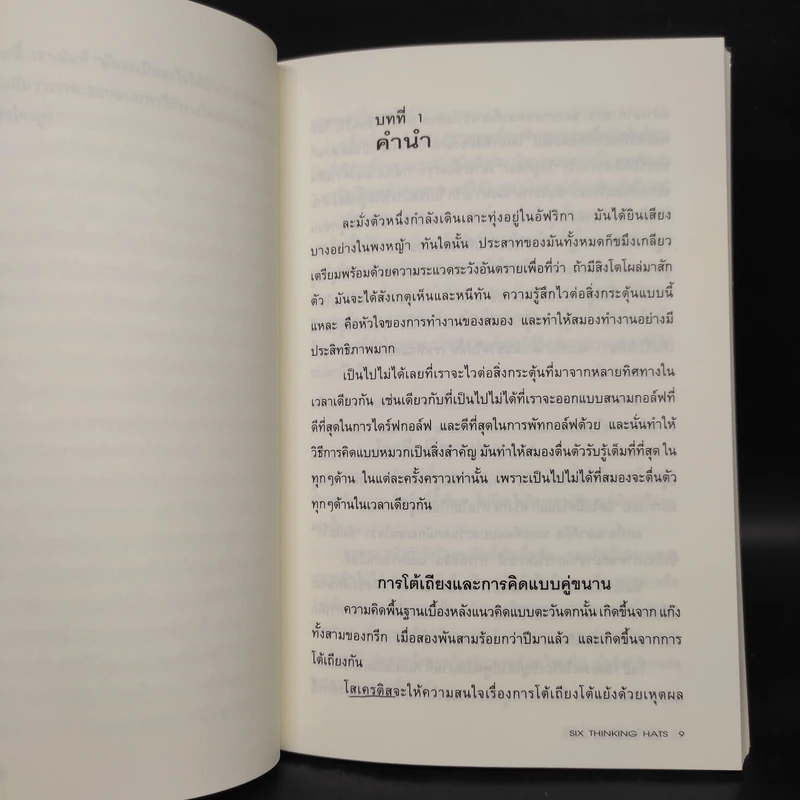 บทที่ 1
คำนำ
ละมั่งตัวหนึ่งกำลังเดินเลาะทุ่งอยู่ในอัฟริกา มันได้ยินเสียง
บางอย่างในพงหญ้า ทันใดนั้น ประสาทของมันทั้งหมดก็ขมึงเกลียว
เตรียมพร้อมด้วยความระแวดระวังอันตรายเพื่อที่ว่า ถ้ามีสิงโตโผล่มาสัก
ตัว มันจะได้สังเกตุเห็นและหนีทัน ความรู้สึกไวต่อสิ่งกระตุ้นแบบนี้
แหละ คือหัวใจของการทำงานของสมอง และทำให้สมองทำงานอย่างมี
ประสิทธิภาพมาก
เป็นไปไม่ได้เลยที่เราจะไวต่อสิ่งกระตุ้นที่มาจากหลายทิศทางใน
เวลาเดียวกัน เช่นเดียวกับที่เป็นไปไม่ได้ที่เราจะออกแบบสนามกอล์ฟที่
ดีที่สุดในการไดร์ฟกอล์ฟ และดีที่สุดในการพัทกอล์ฟด้วย และนั่นทำให้
วิธีการคิดแบบหมวกเป็นสิ่งสำคัญ มันทำให้สมองตื่นตัวรับรู้เต็มที่ที่สุด ใน
ทุกๆด้าน ในแต่ละครั้งคราวเท่านั้น เพราะเป็นไปไม่ได้ที่สมองจะตื่นตัว
ทุกๆด้านในเวลาเดียวกัน
การโต้เถียงและการคิดแบบคู่ขนาน
ความคิดพื้นฐานเบื้องหลังแนวคิดแบบตะวันตกนั้น เกิดขึ้นจาก แก๊ง
ทั้งสามของกรีก เมื่อสองพันสามร้อยกว่าปีมาแล้ว และเกิดขึ้นจากการ
โต้เถียงกัน
โสเครติสจะให้ความสนใจเรื่องการโต้เถียงโต้แย้งด้วยเหตุผล
SIX THINKING HATS 9